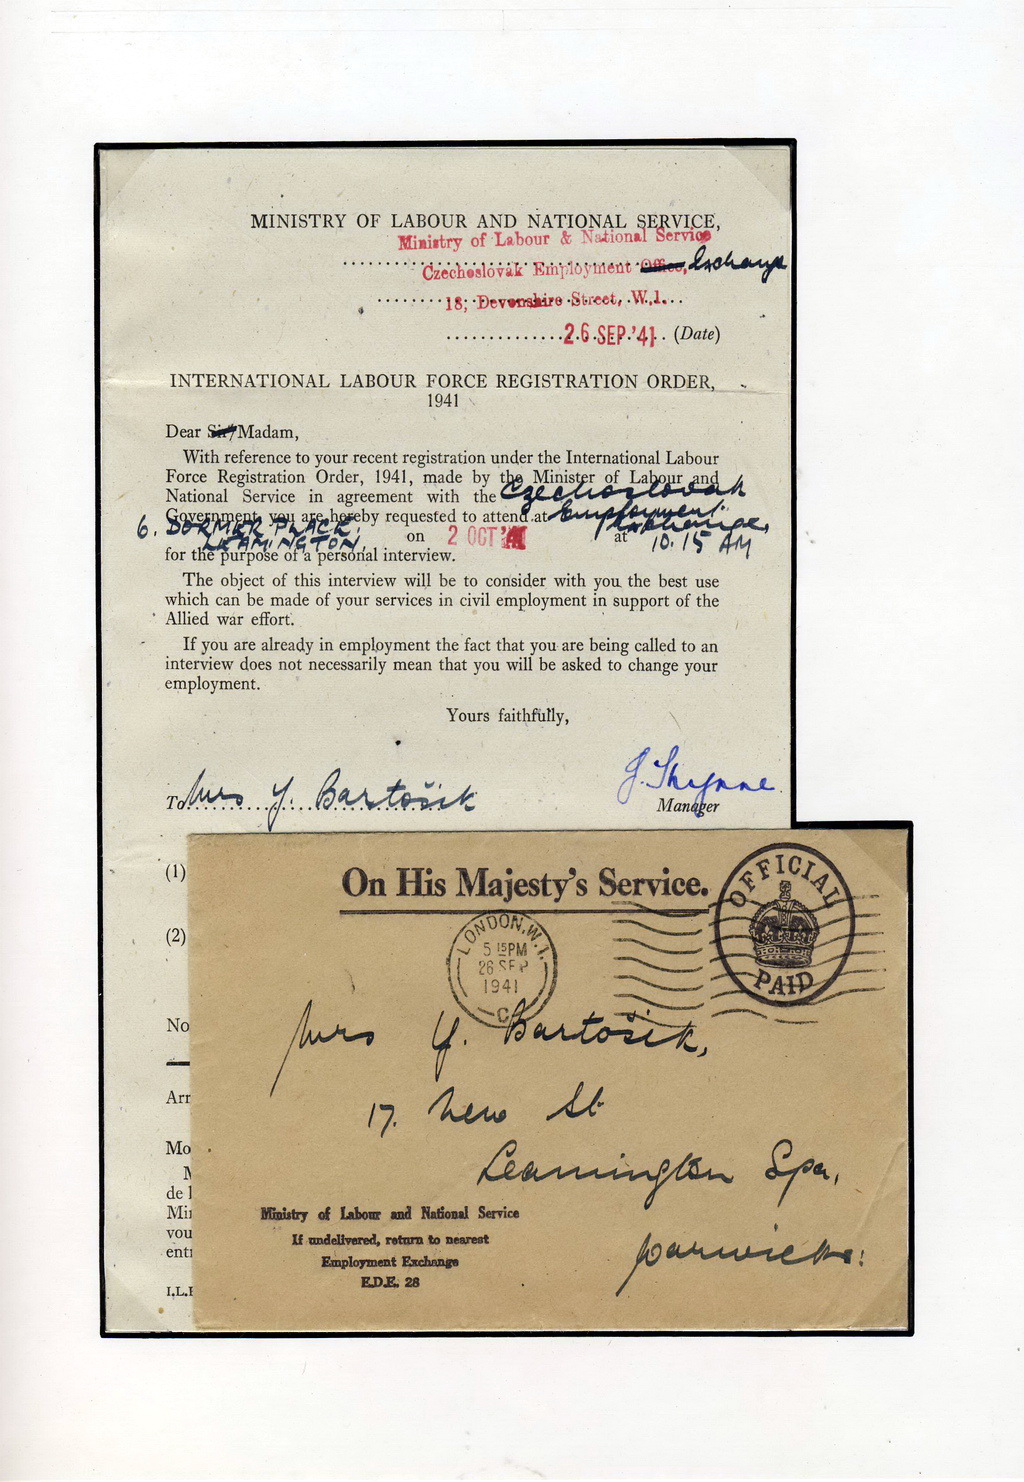 MINISTRY OF LABOUR AND NATIONAL SERVICE,
Ministry of Labour & National Service
Czechoslovak Employment Office, Exchange
18, Devonshire Street, W.1.
26 SEP. '41 (Date)
INTERNATIONAL LABOUR FORCE REGISTRATION ORDER,
1941
Dear Sir/Madam,
With reference to your recent registration under the International Labour
Force Registration Order, 1941, made by the Minister of Labour and
National Service in agreement with the Czechoslovak
Government, you are hereby requested to attend at Employment
6. DORMER PLACE, Exchange,
LEAMINGTON on 2 OCT '41 at 10.15 AM
for the purpose of a personal interview.
The object of this interview will be to consider with you the best use
which can be made of your services in civil employment in support of the
Allied war effort.
If you are already in employment the fact that you are being called to an
interview does not necessarily mean that you will be asked to change your
employment.
Yours faithfully,
To Mrs Y. Bartošik
J. Thynne
Manager
(1)
(2)
No
Arr
Mo
M
de l
Min
vou
entr
I.L.F
On His Majesty's Service.
OFFICIAL
PAID
LONDON, W.1.
5 15 PM
26 SEP
1941
C
Mrs Y. Bartošik,
17. New St
Leamington Spa,
Warwicks:
Ministry of Labour and National Service
If undelivered, return to nearest
Employment Exchange
E.D.E. 28